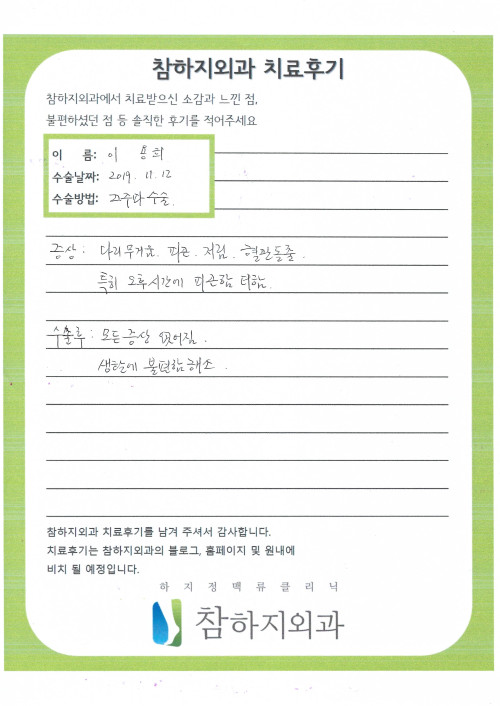 참하지외과 치료후기
참하지외과에서 치료받으신 소감과 느낀 점,
불편하셨던 점 등 솔직한 후기를 적어주세요
이 름: 이 용희
수술날짜: 2019. 11. 12
수술방법: 고주파수술.
증상: 다리무거움. 피곤. 저림. 혈관돌출.
특히 오후시간에 피곤함 더함.
수술후: 모든증상 없어짐.
생활에 불편함 해소.
참하지외과 치료후기를 남겨 주셔서 감사합니다.
치료후기는 참하지외과의 블로그, 홈페이지 및 원내에
비치 될 예정입니다.
하지정맥류클리닉
참하지외과